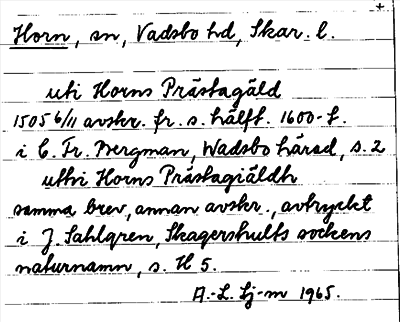 +
Horn, sn, Vadsbo hd, Skar. l.
uti Horns Prästagäld
1505 6/11 avskr. fr. s. hälft. 1600-t.
i C. Fr. Bergman, Wadsbo härad, s. 2
uthi Horns Prästagiäldh
samma brev, annan avskr., avtryckt
i J. Sahlgren, Skagershults sockens
naturnamn, s. H 5.
A.-L. Lj-m 1965.